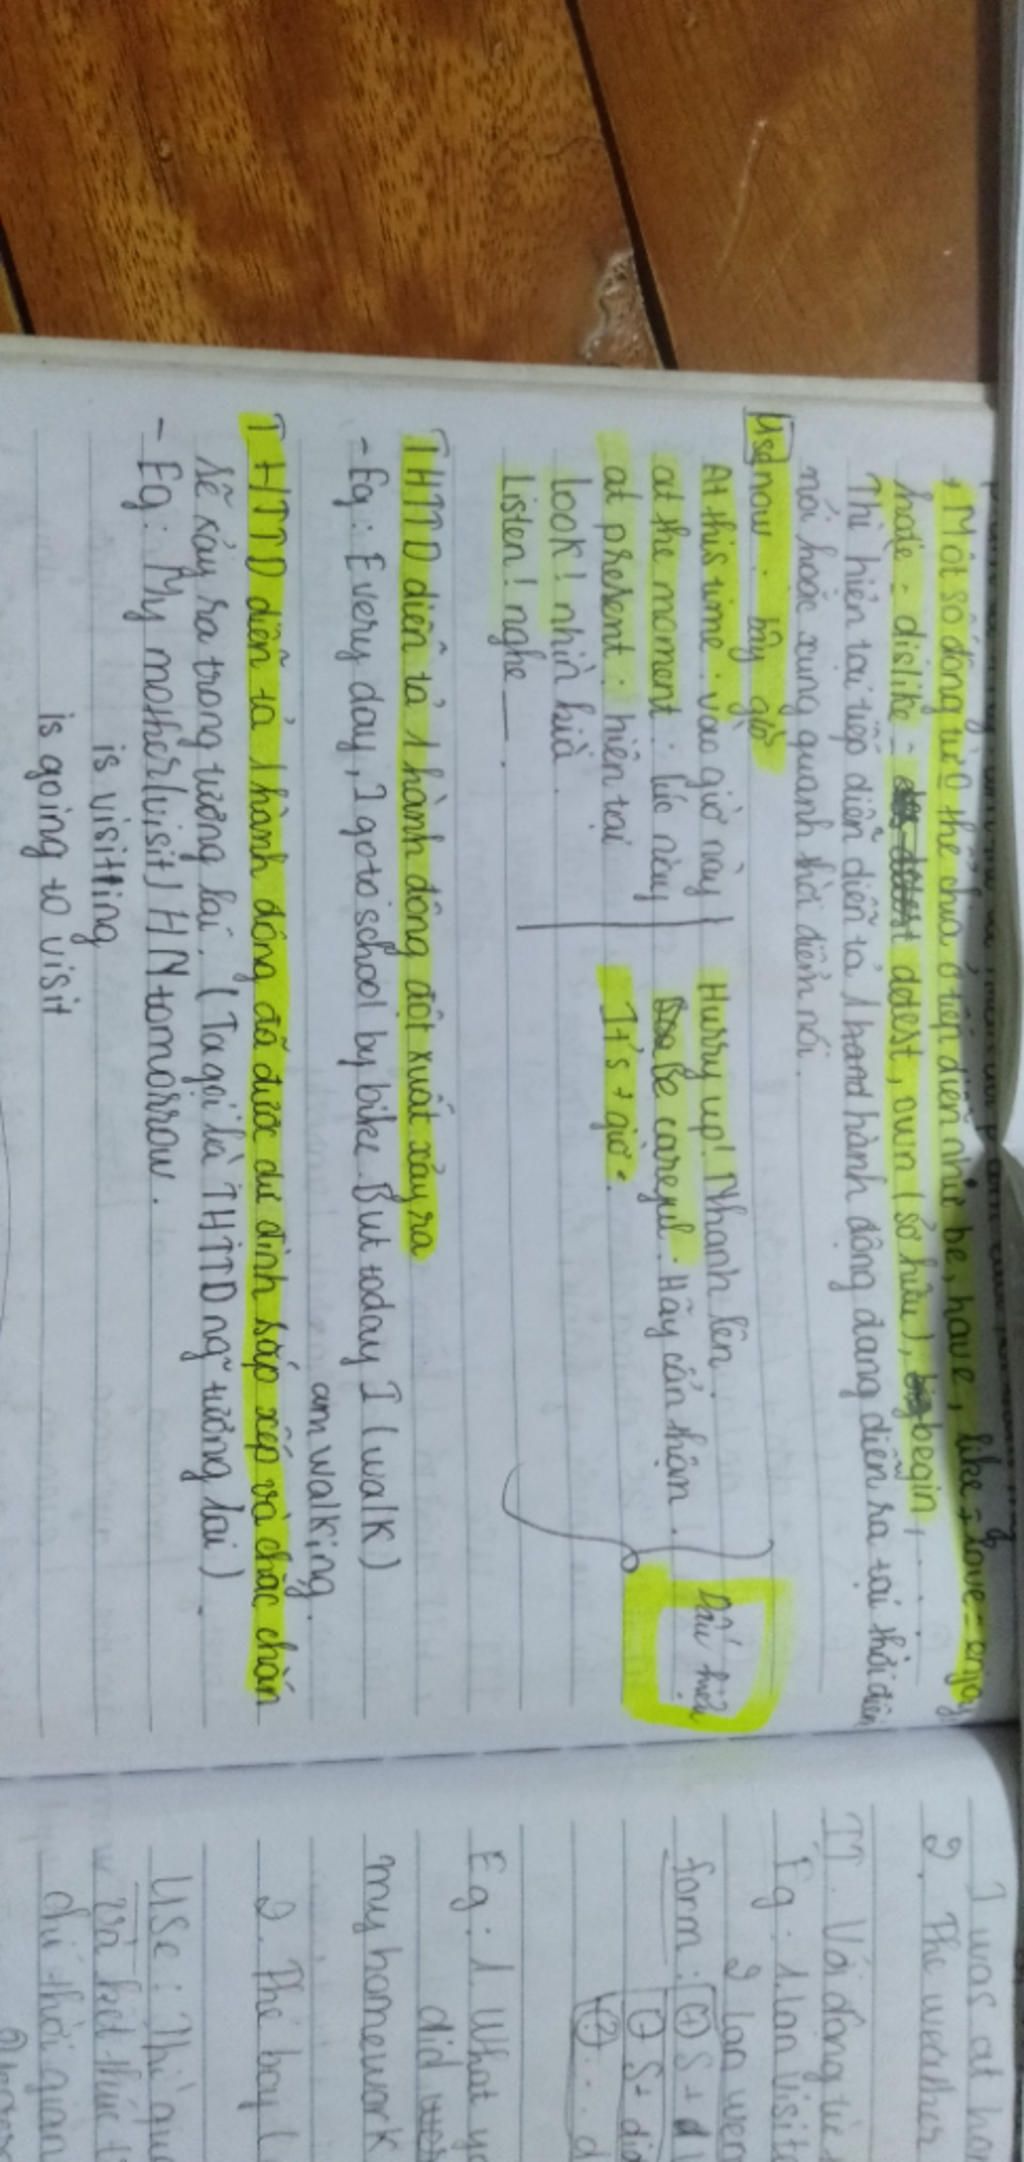 + Một số động từ 0 thể chia ở tiếp diễn như be, have, like = love = enjoy
hate = dislike = detest, own (sở hữu), begin, . . . .
Thì hiện tại tiếp diễn diễn tả 1 hành động đang diễn ra tại thời điểm
nói hoặc xung quanh thời điểm nói.
Use now : bây giờ
At this time : vào giờ này
at the moment : lúc này
at present : hiện tại
Look! nhìn kìa
Listen! nghe
Hurry up! Nhanh lên.
Be careful : Hãy cẩn thận.
It's + giờ :
Dấu hiệu
THTTD diễn tả 1 hành động đột xuất xảy ra
- Eg : Every day, I go to school by bike. But today I (walk)
am walking.
THTTD diễn tả 1 hành động đã được dự định sắp xếp và chắc chắn
sẽ xảy ra trong tương lai. (Ta gọi là THTTD ng~ tương lai).
- Eg : My mother (visit) HN tomorrow.
is visitting
is going to visit
I was at
2. The weather
II. Với động từ
Eg : 1. Lan visite
2 Lan
form : (+) S +
(-) S + did
(?)
Eg : 1. What
did
my homework
2. The boy (
Use : Thì
và kết thúc
chỉ thời gian